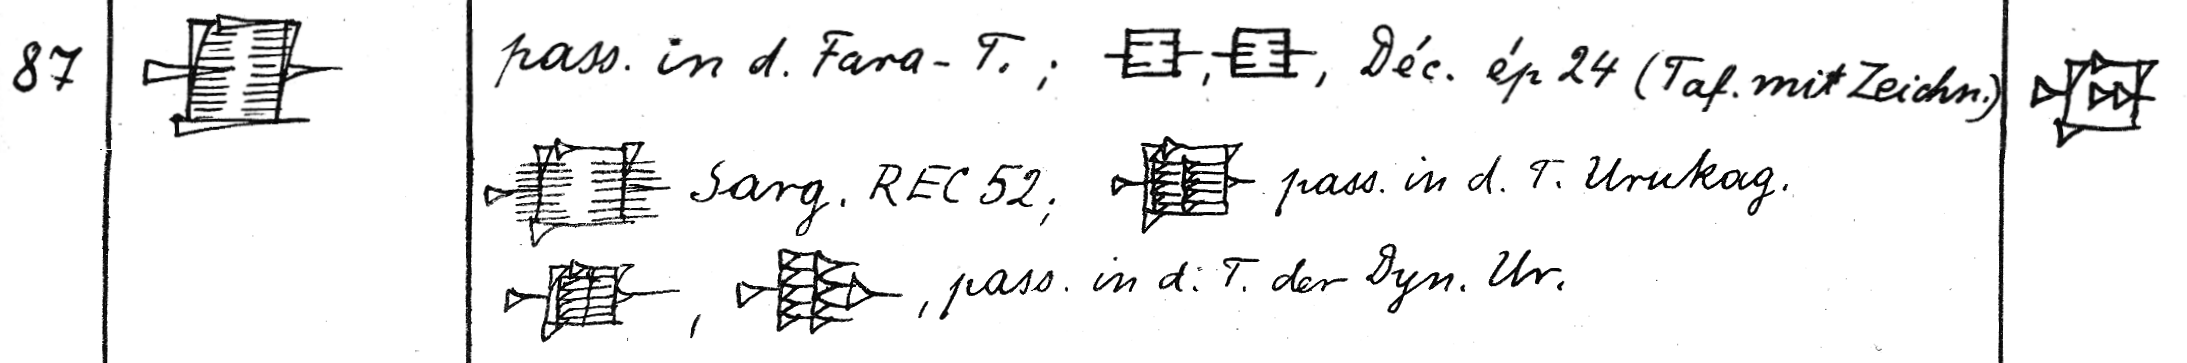 87 pass. in d. Fara-T.; , , Déc. ép 24 (Taf. mit Zeichn.)
Sarg. REC 52; pass. in d. T. Urukag.
, , pass. in d. T. der Dyn. Ur.